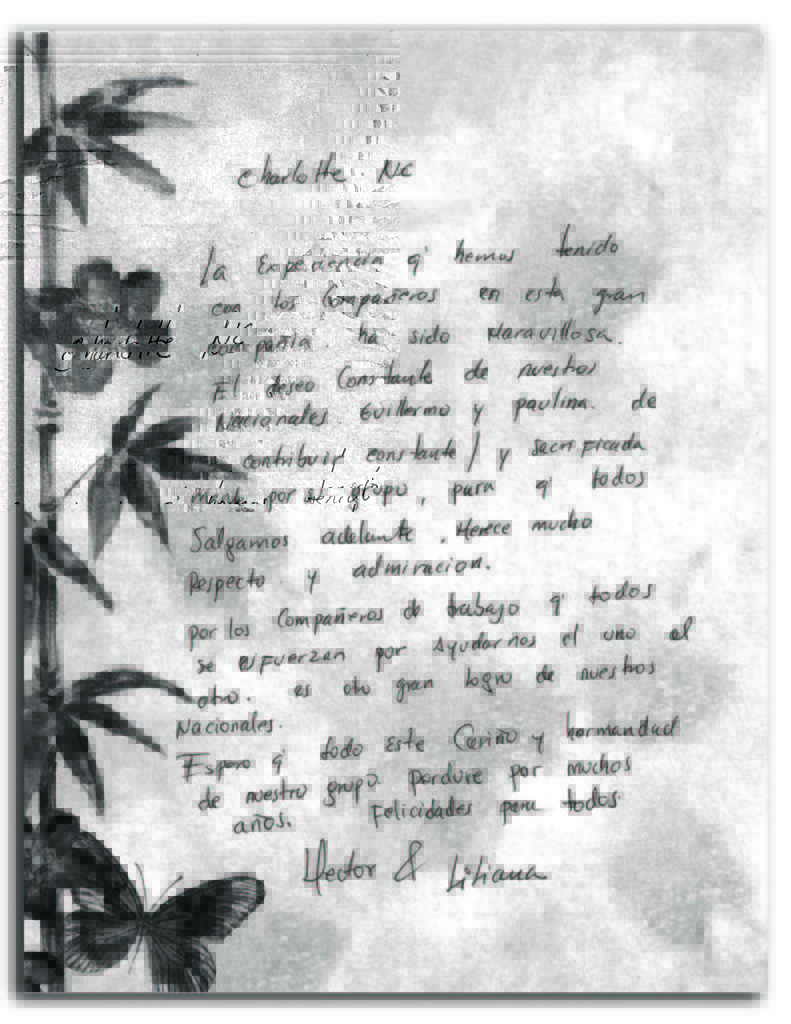 Charlotte. NC
La Experiencia q' hemos tenido
con los Compañeros en esta gran
compañia. ha sido Maravillosa.
El deseo Constante de nuestros
Nacionales. Guillermo y paulina. de
contribuir constante/ y sacrificada
mente por el grupo, para q' todos
Salgamos adelante, Merece mucho
Respecto y admiracion.
por los Compañeros de trabajo q' todos
se esfuerzan por Ayudarnos el uno al
otro. es oto gran logro de nuestros
Nacionales.
Espero q' todo Este Cariño y hermandad
de nuestro grupo. perdure por muchos
años. Felicidades para todos.
Hector & Liliana